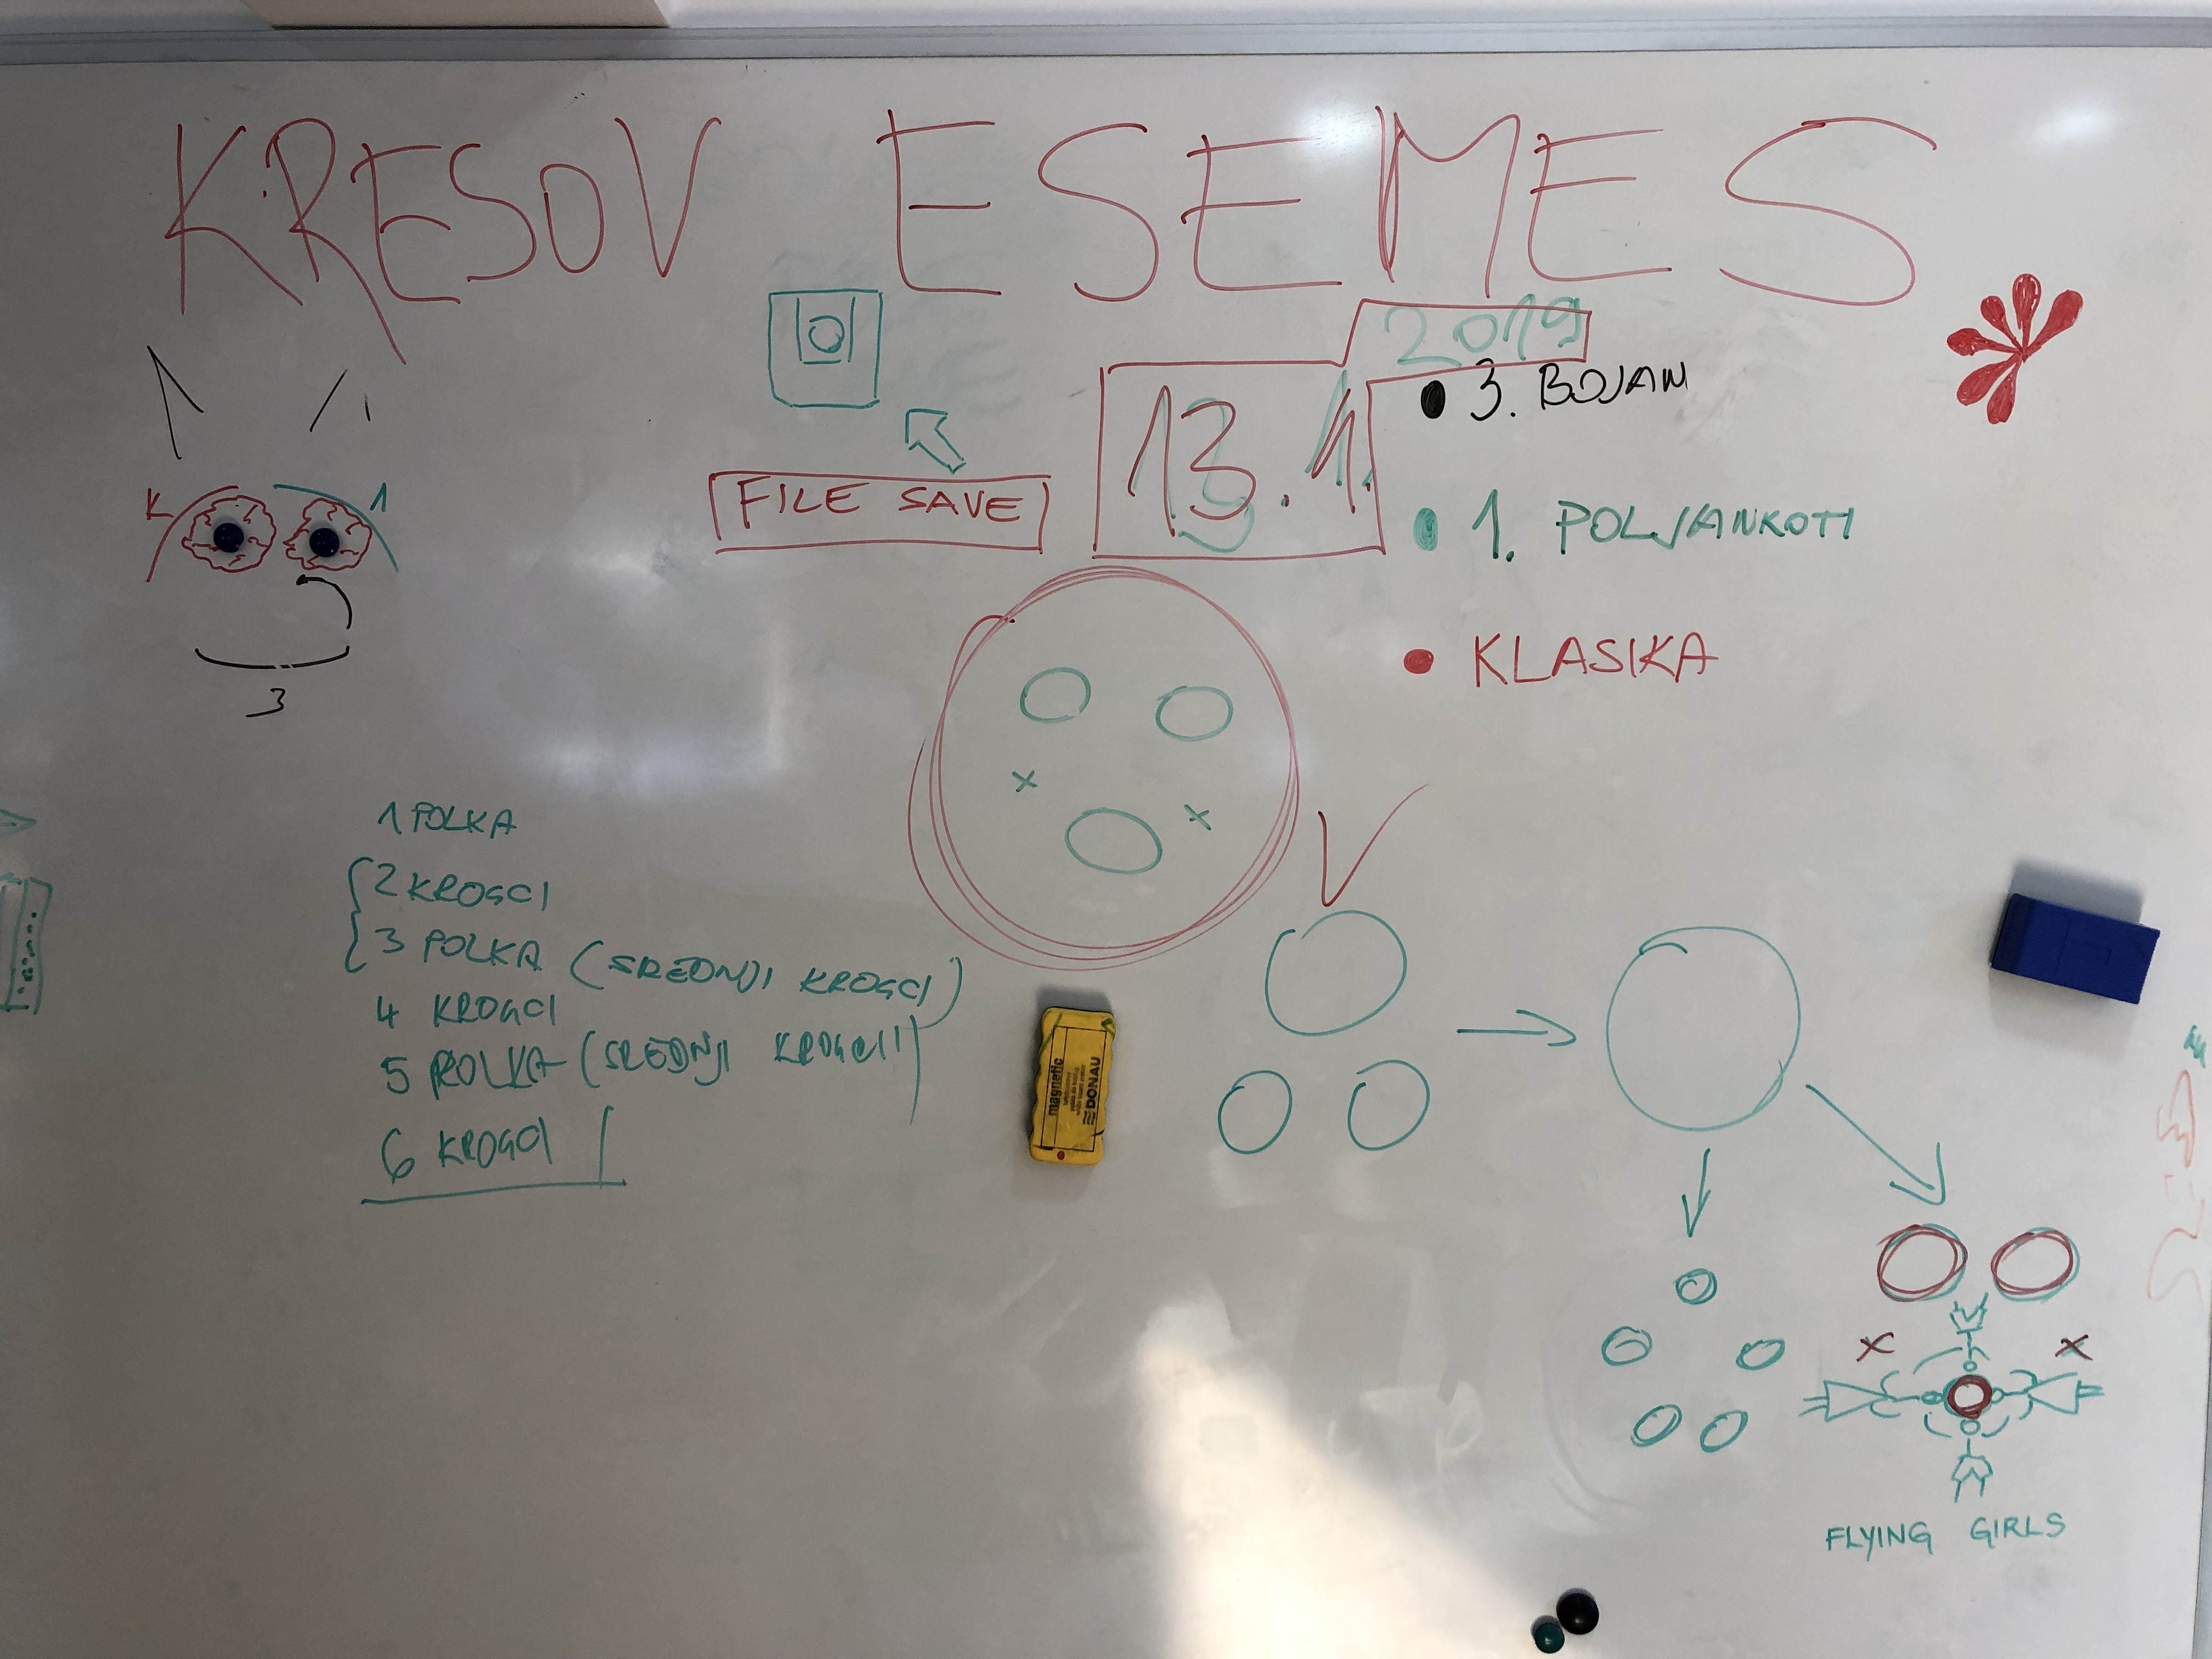 KRESOV ESEMES
2019
13.1.
FILE SAVE
3. BOJAN
1. POLJANKOTI
KLASIKA
K 1
3
1 POLKA
2 KROGCI
3 POLKA (SREDNJI KROGCI)
4 KROGCI
5 POLKA (SREDNJI KROGCI)
6 KROGCI
magnetic
DONAU
FLYING GIRLS